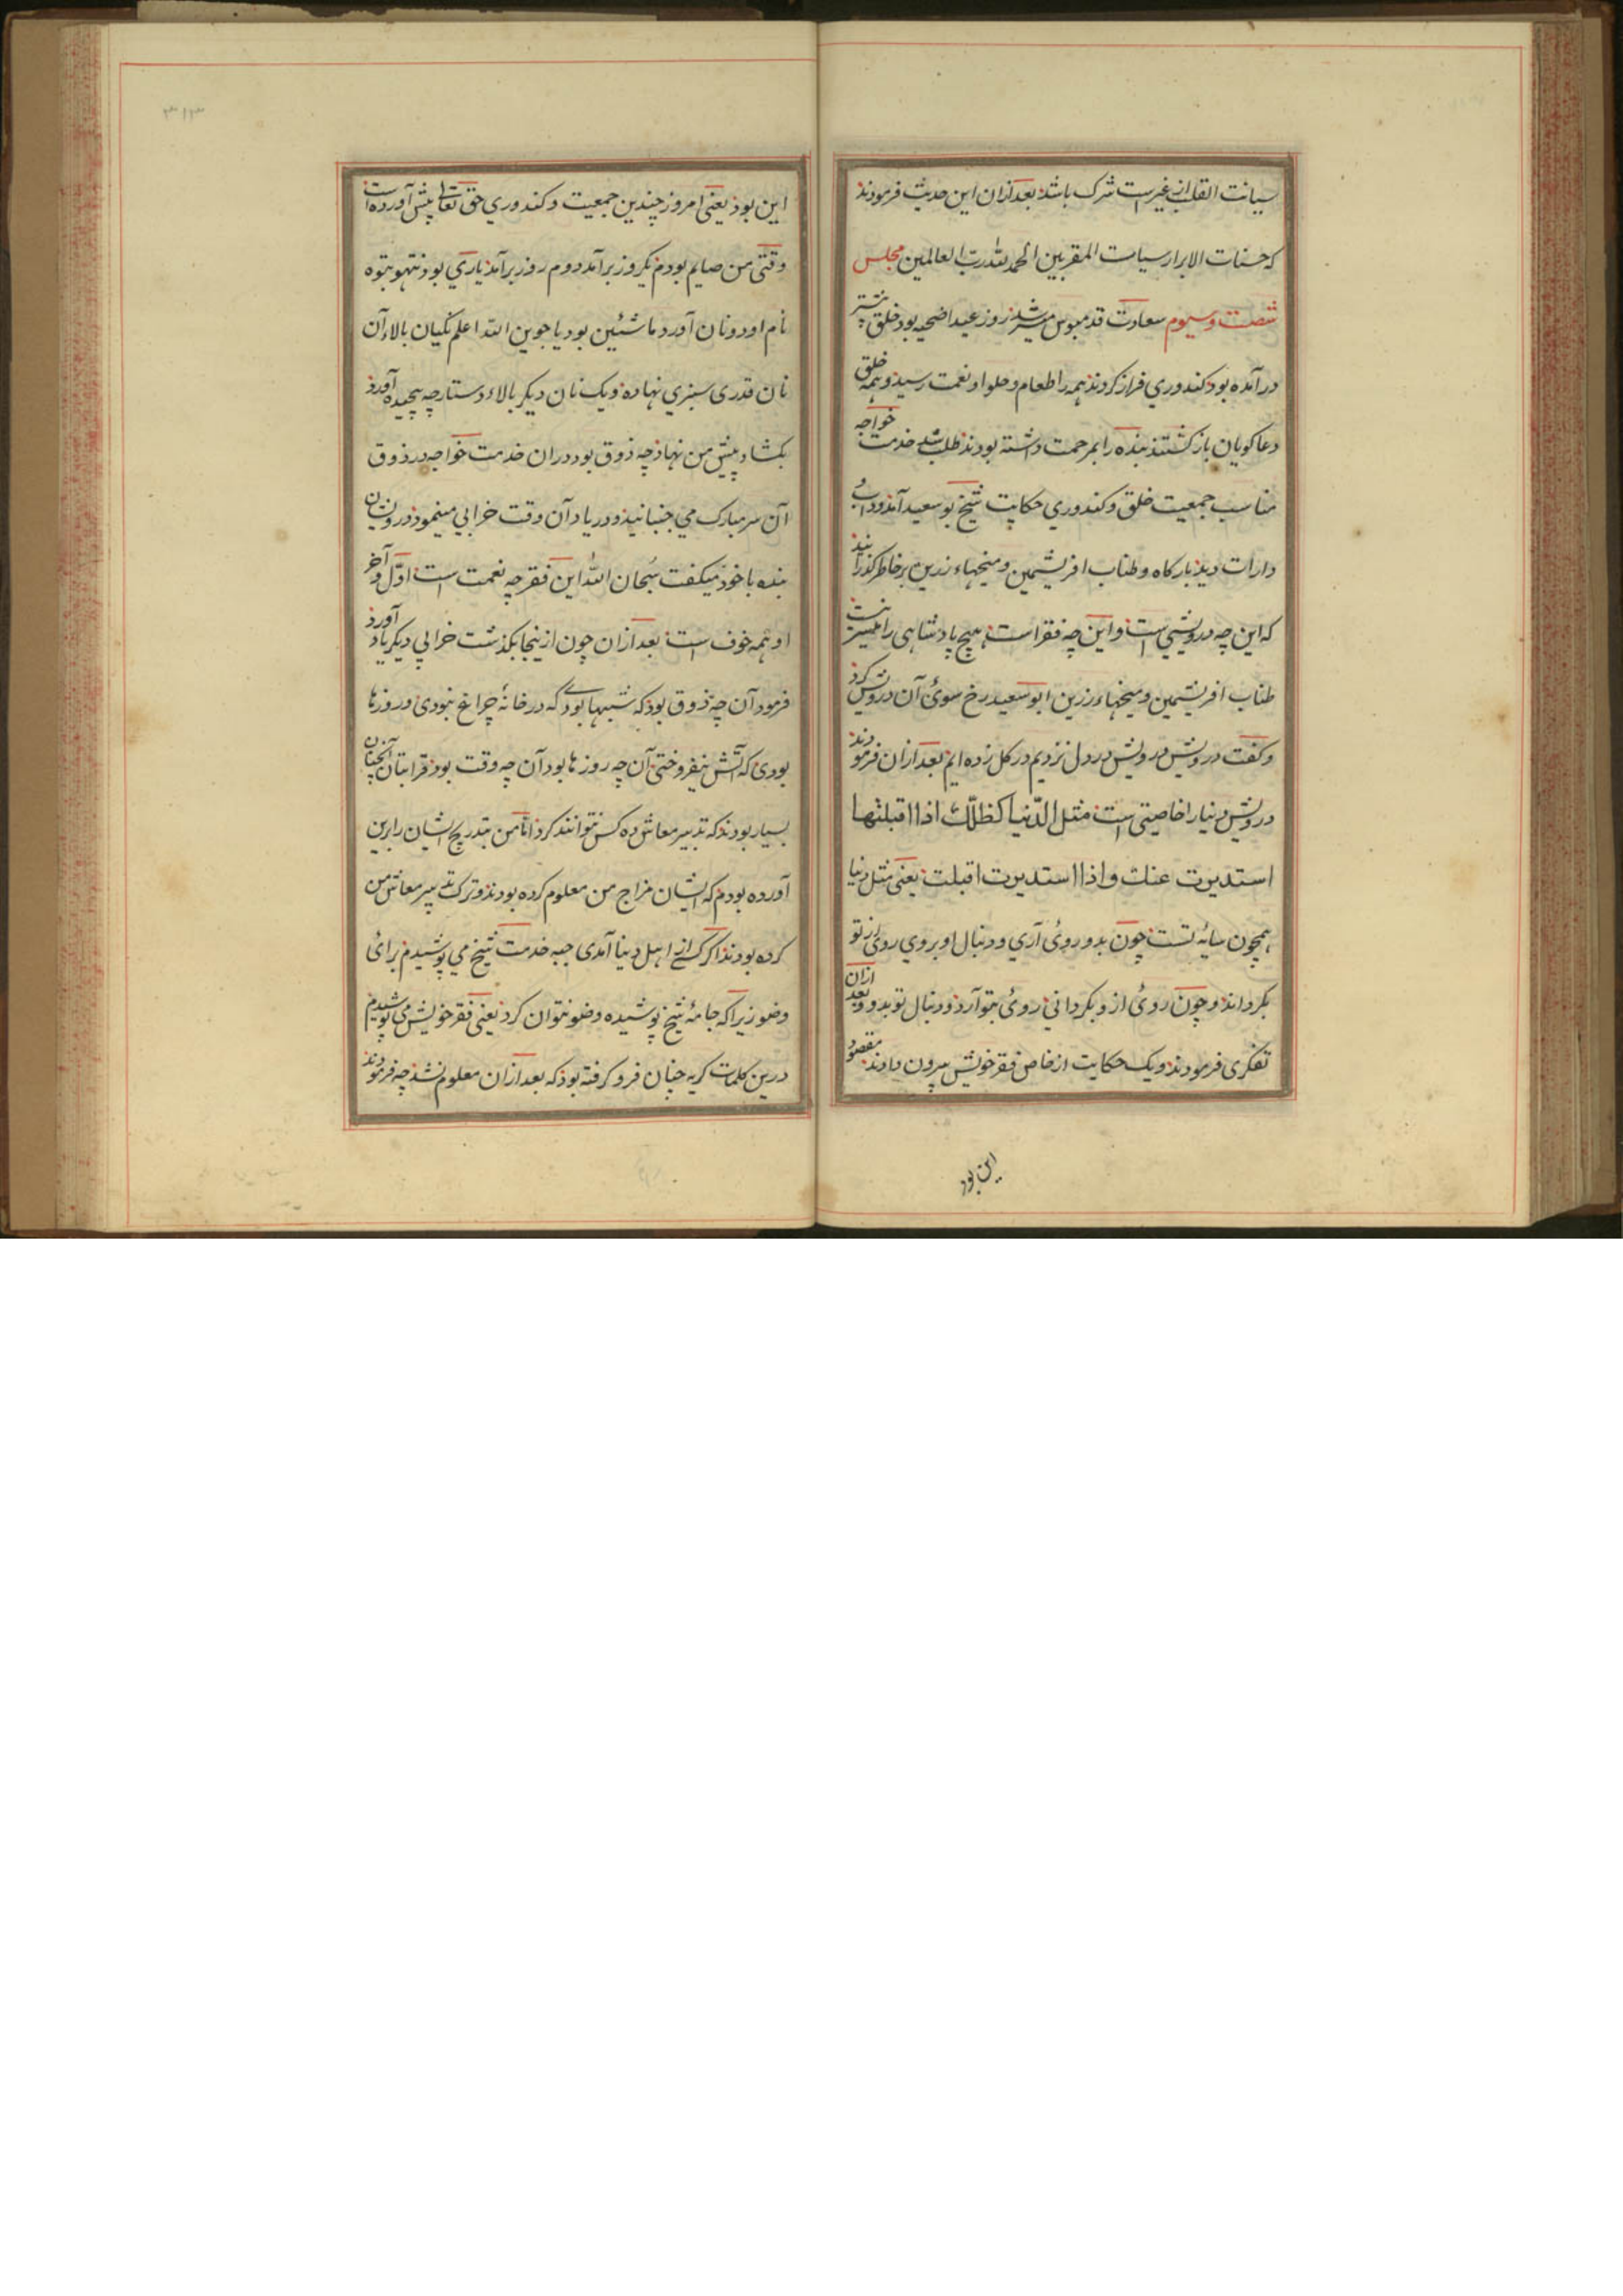 سیانت القلب از غیرست شرک باشد بعد ازان این حدیث فرمودند
که حسنات الابرار سیات المقربین الحمد لله رب العالمین مجلس
شصت و سیوم سعادت قدمبوس میسر شد روز عید اضحیه بود خلق بیشتر
در آمده بود کندوری فراز کردند همه را طعام و حلوا و نعمت رسید و همه خلق
دعا کویان باز کشتند بنده را بمرحمت داشته بودند طلب شد خدمت خواجه
مناسب جمعیت خلق و کندوری حکایت شیخ بو سعید آمد و داب
دارات دید بارکاه و طناب افریشمین و میخهاء زرین بر خاطر کذرانید
که این چه درویشی است و این چه فقر است هیچ پادشاهی را میسر نیست
طناب افریشمین و میخهاء زرین ابو سعید رخ سوئ آن درویش کرد
و کفت درویش درویش در دل نزدیم در کل زده ایم بعد ازان فرمودند
درویش دنیا را خاصیتی است مثل الدنیا کظلک اذا اقبلتها
استدبرت عنک و اذا استدبرت اقبلت یعنی مثل دنیا
همچون سایه تست چون بدو روئ آری و دنبال او بروی روی از تو
بکرداند و چون روئ ازو بکردانی روئ بتو آرد و دنبال تو بدود بعد ازان
تفکری فرمودند و یک حکایت از خاص فقر خویش بیرون دادند مقصود
این بود
۳۱۳
این بود یعنی امروز چندین جمعیت و کندوری حق تعالی پیش آورده است
وقتی من صایم بودم یکروز برآمد دوم روز برآمد یاری بود نتهو پتوه
نام او دو نان آورد ماشئین بود یا جوین الله اعلم نکیان بالاء آن
نان قدری سبزی نهاده و یک نان دیکر بالاء دستارچه پیچیده آورد
بکشاد پیش من نهاد چه ذوق بود دران خدمت خواجه در ذوق
آن سر مبارک می جنبانید و در یاد آن وقت خرابی مینمود درویشان
بنده با خود میکفت سبحان الله این فقر چه نعمت است اول و آخر
او همه خوف است بعد ازان چون ازینجا بکذشت خرابی دیکر یاد آورد
فرمود آن چه ذوق بود که شبها بودی که در خانه چراغ نبودی و روزها
بودی که آتش نیفروختی آن چه روزها بود آن چه وقت بود قرابتان آنچنان
بسیار بودند که تدبیر معاش ده کس توانند کرد اما من بتدریج ایشان را برین
آورده بودم که ایشان مزاج من معلوم کرده بودند و ترک تدبیر معاش من
کرده بودند اکر کسی از اهل دنیا آمدی جبه خدمت شیخ می پوشیدم برائ
وضو زیرا که جامه شیخ پوشیده وضو نتوان کرد یعنی فقر خویش می پوشیدم
درین کلمات کریه چنان فرو کرفته بود که بعد ازان معلوم نشد چه فرمودند